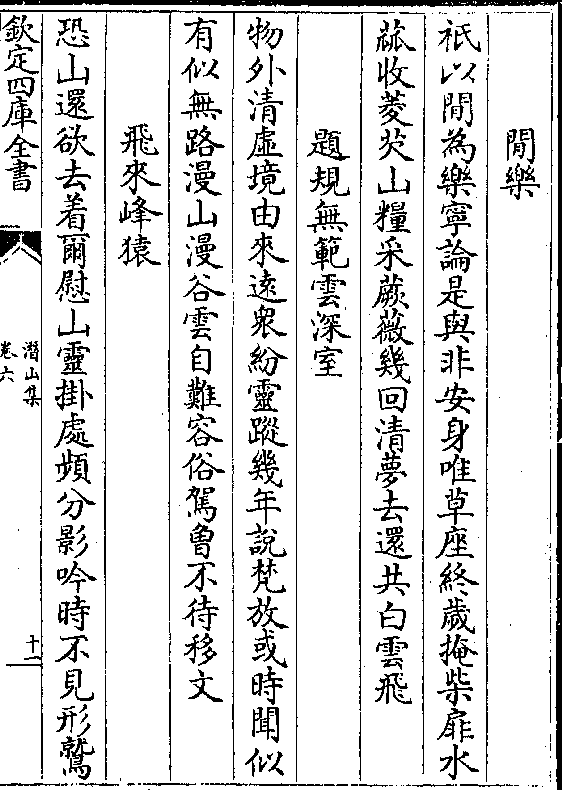 閒樂
祇以閒為樂寧論是與非安身唯草座終歲掩柴扉水
蓏收菱芡山糧采蕨薇幾回清夢去還共白雲飛
題規無範雲深室
物外清虛境由來遠衆紛靈蹤幾年說梵放或時聞似
有似無路漫山漫谷雲自難容俗駕魯不待移文
飛來峰猿
恐山還欲去着爾慰山靈掛處頻分影吟時不見形鷲
欽定四庫全書
潛山集
卷六
十一